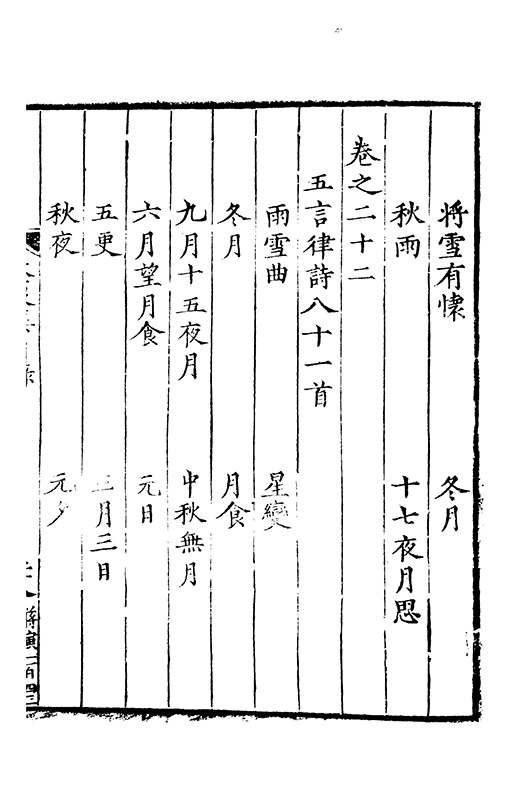 将雪有懷　冬月
秋雨　十七夜月思
卷之二十二
五言律詩八十一首
雨雪曲　星變
冬月　月食
九月十五夜月　中秋無月
六月望月食　元日
五更　三月三日
秋夜　元夕